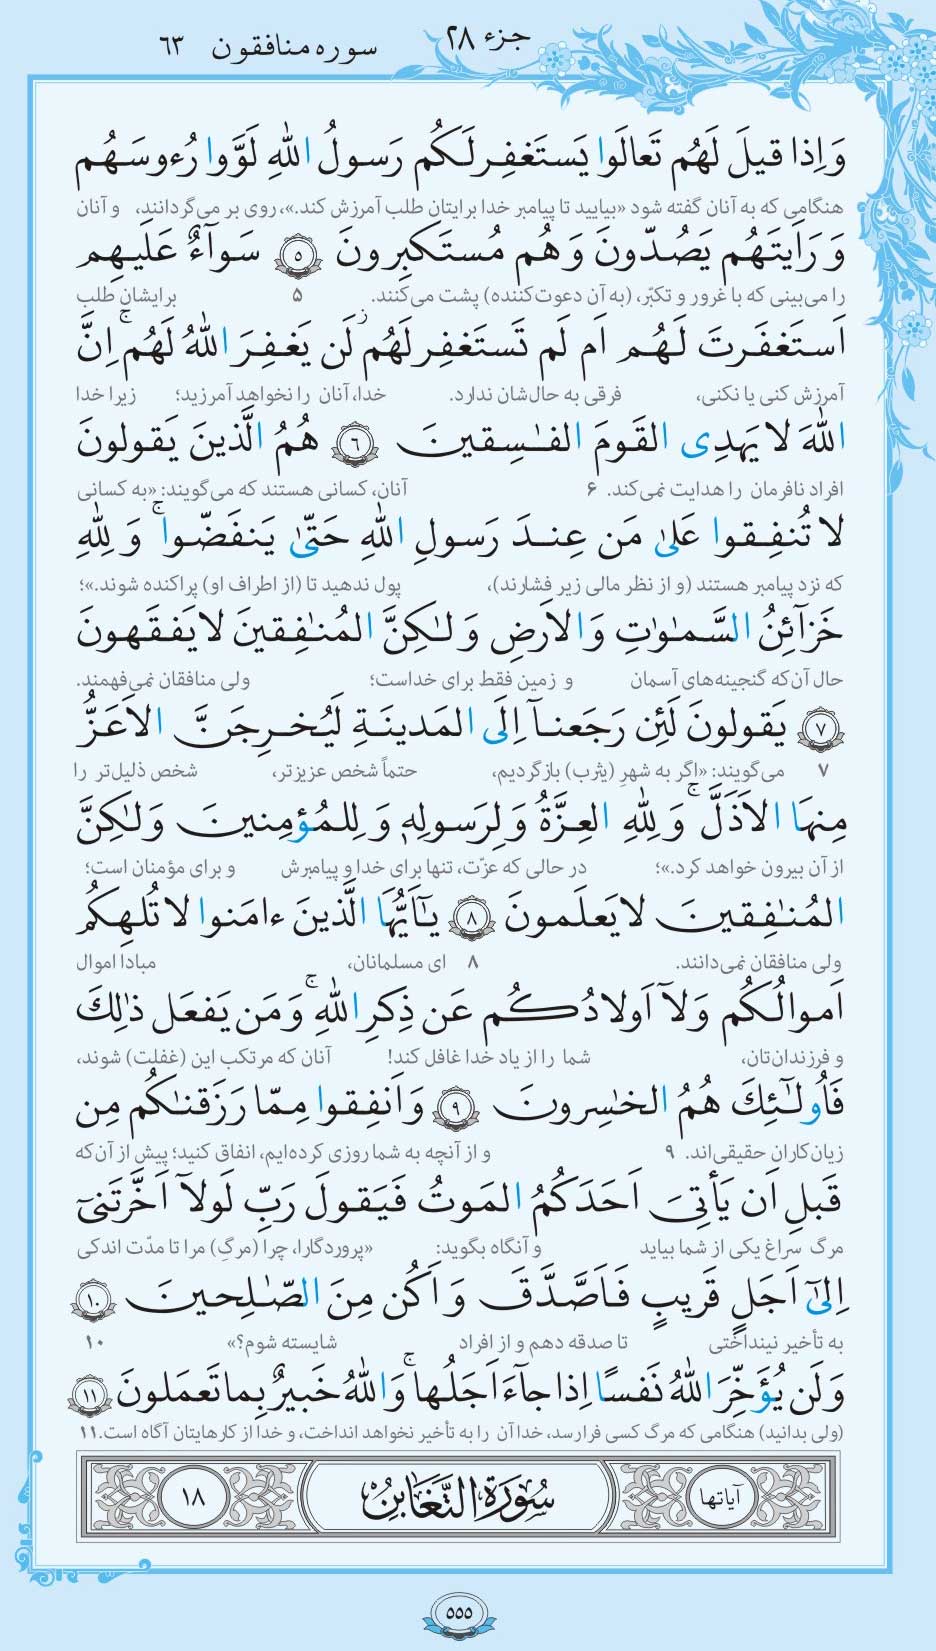 جزء ۲۸
سوره منافقون ۶۳
وَاِذا قیلَ لَهُم تَعالَوا یَستَغفِرلَکُم رَسولُ اللهِ لَوَّوا رُءوسَهُم
هنگامی که به آنان گفته شود «بیایید تا پیامبر خدا برایتان طلب آمرزش کند.»، روی بر می‌گردانند، و آنان
وَرَاَیتَهُم یَصُدّونَ وَهُم مُستَکبِرونَ ۵ سَوآءٌ عَلَیهِم
را می‌بینی که با غرور و تکبّر، (به آن دعوت‌کننده) پشت می‌کنند. ۵ برایشان طلب
اَستَغفَرتَ لَهُم اَم لَم تَستَغفِرلَهُم ز لَن یَغفِرَ اللهُ لَهُم ج اِنَّ
آمرزش کنی یا نکنی، فرقی به حال‌شان ندارد. خدا، آنان را نخواهد آمرزید؛ زیرا خدا
اللهَ لا یَهدِی القَومَ الفٰسِقینَ ۶ هُمُ الَّذینَ یَقولونَ
افراد نافرمان را هدایت نمی‌کند. ۶ آنان، کسانی هستند که می‌گویند: «به کسانی
لا تُنفِقوا عَلیٰ مَن عِندَ رَسولِ اللهِ حَتّیٰ یَنفَضّوا ج وَلِلّٰهِ
که نزد پیامبر هستند (و از نظر مالی زیر فشارند)، پول ندهید تا (از اطراف او) پراکنده شوند.»؛
خَزآئِنُ السَّمٰوٰتِ وَالاَرضِ وَلٰکِنَّ المُنٰفِقینَ لا یَفقَهونَ
حال آن‌که گنجینه‌های آسمان و زمین فقط برای خداست؛ ولی منافقان نمی‌فهمند.
۷ یَقولونَ لَئِن رَجَعنآ اِلَی المَدینَةِ لَیُخرِجَنَّ الاَعَزُّ
۷ می‌گویند: «اگر به شهرِ (یثرب) بازگردیم، حتماً شخص عزیزتر، شخص ذلیل‌تر را
مِنهَا الاَذَلَّ ج وَلِلّٰهِ العِزَّةُ وَلِرَسولِهٖ وَلِلمُؤمِنینَ وَلٰکِنَّ
از آن بیرون خواهد کرد.»؛ در حالی که عزّت، تنها برای خدا و پیامبرش و برای مؤمنان است؛
المُنٰفِقینَ لا یَعلَمونَ ۸ یٰٓاَیُّهَا الَّذینَ ءامَنوا لا تُلهِکُم
ولی منافقان نمی‌دانند. ۸ ای مسلمانان، مبادا اموال
اَموالُکُم وَلآ اَولادُکُم عَن ذِکرِ اللهِ ج وَمَن یَفعَل ذٰلِكَ
و فرزندان‌تان، شما را از یاد خدا غافل کند! آنان که مرتکب این (غفلت) شوند،
فَاُولٰٓئِكَ هُمُ الخٰسِرونَ ۹ وَاَنفِقوا مِمّا رَزَقنٰکُم مِن
زیان‌کاران حقیقی‌اند. ۹ و از آنچه به شما روزی کرده‌ایم، انفاق کنید؛ پیش از آن‌که
قَبلِ اَن یَأتِیَ اَحَدَکُمُ المَوتُ فَیَقولَ رَبِّ لَولآ اَخَّرتَنیٓ
مرگ سراغ یکی از شما بیاید و آنگاه بگوید: «پروردگارا، چرا (مرگِ) مرا تا مدّت اندکی
اِلیٰٓ اَجَلٍ قَریبٍ فَاَصَّدَّقَ وَاَکُن مِنَ الصّٰلِحینَ ۱۰
به تأخیر نینداختی تا صدقه دهم و از افراد شایسته شوم؟» ۱۰
وَلَن یُؤَخِّرَ اللهُ نَفسًا اِذا جآءَ اَجَلُها ج وَاللهُ خَبیرٌ بِما تَعمَلونَ ۱۱
(ولی بدانید) هنگامی که مرگ کسی فرا رسد، خدا آن را به تأخیر نخواهد انداخت، و خدا از کارهایتان آگاه است. ۱۱
آیاتها سُورَةُ التَّغَابُنِ ۱۸
۵۵۵